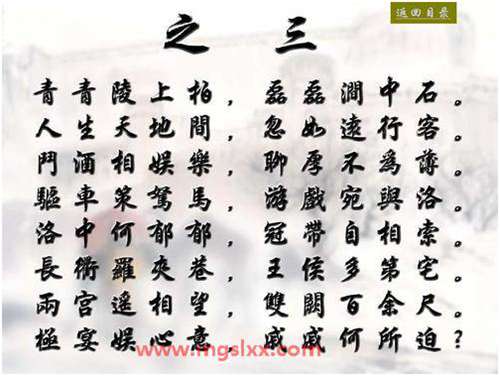 返回目录
之三
青青陵上柏，磊磊澗中石。
人生天地間，忽如遠行客。
鬥酒相娛樂，聊厚不為薄。
驅車策駑馬，游戲宛與洛。
洛中何郁郁，冠帶自相索。
長衢羅夾巷，王侯多第宅。
兩宮遥相望，雙闕百余尺。
極宴娛心意，戚戚何所迫？
www.mgslxx.com